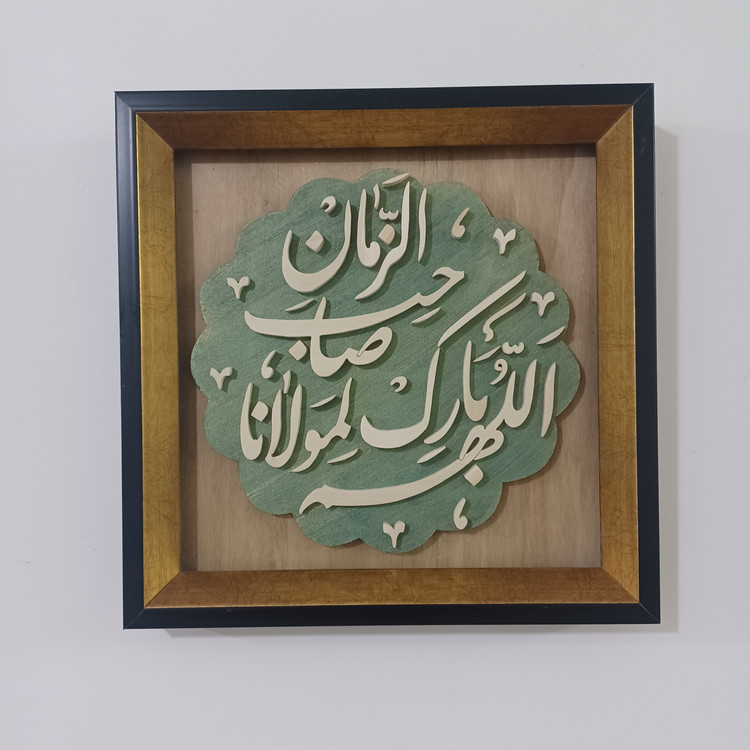 اللّٰهم بارِك لِمَولانا
صاحِب
الزَّمان